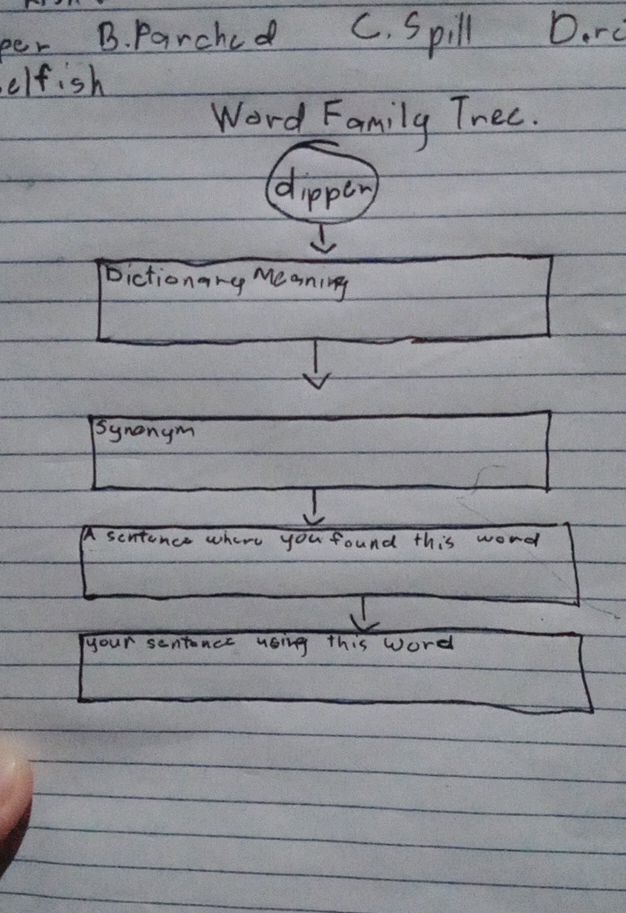 per B. Parched C. Spill D. rc
elfish
Word Family Tree.
dipper
Dictionary Meaning
Synonym
A sentence where you found this word
your sentence using this word